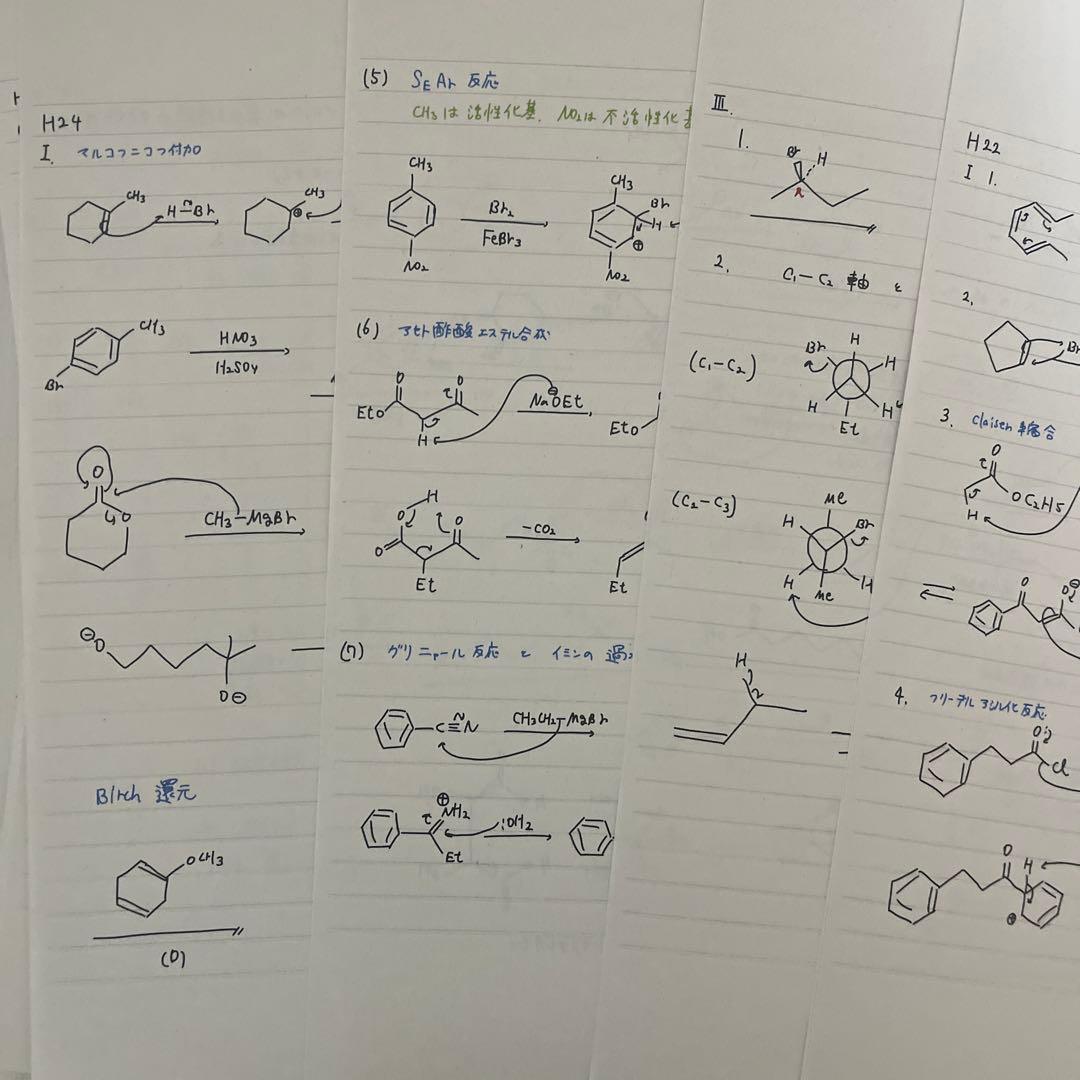 H24
I. マルコフニコフ付加
CH3
H-Br
CH3
⊕
CH3
Br
HNO3
H2SO4
O
O
CH3-MgBr
⊖O
O⊖
Birch 還元
OCH3
(D)
(5) SEAr 反応
CH3は 活性化基. NO2は 不活性化
CH3
NO2
Br2
FeBr3
CH3
Br
H
⊕
NO2
(6) アセト酢酸エステル合成
O
O
EtO
H
⊖
NaOEt
EtO
H
O
O
O
Et
-CO2
Et
(7) グリニャール 反応 と イミンの
C≡N
CH3CH2-MgBr
⊕
NH2
Et
:OH2
III.
1.
Br
H
R
2. C1-C2 軸
(C1-C2)
Br
H
H
H
H
Et
(C2-C3)
Me
H
Br
H
H
Me
H
H22
I 1.
2.
Br
3. Claisen 縮合
O
OC2H5
H
O
O⊖
4. フリーデル アシル化反応
O
Cl
O
H
⊕